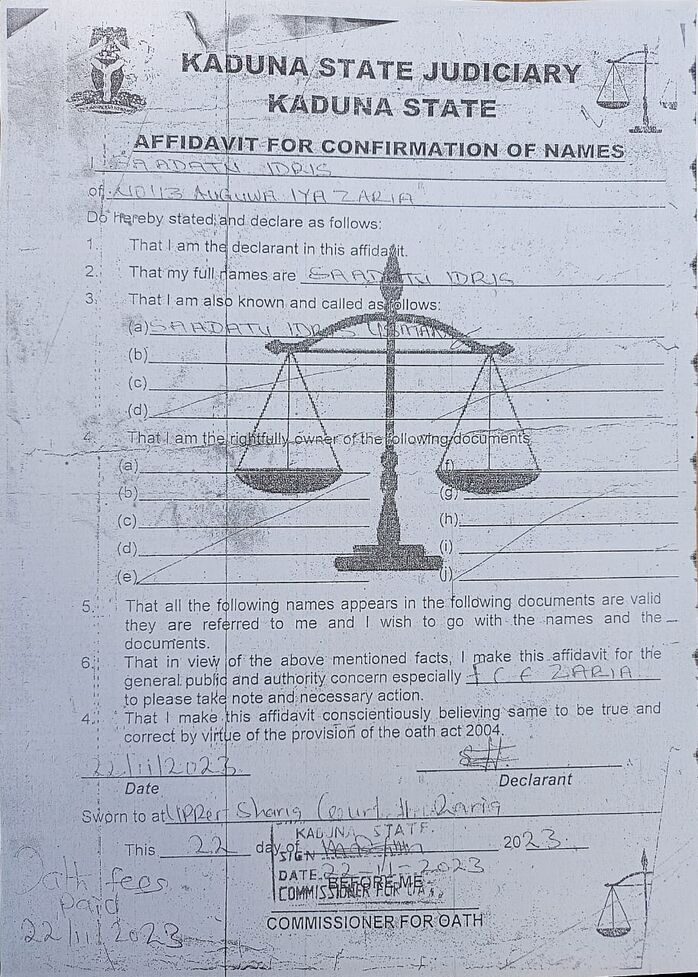 KADUNA STATE JUDICIARY
KADUNA STATE
AFFIDAVIT FOR CONFIRMATION OF NAMES
I SAADATU IDRIS
of NO 113 ANGUWA IYA ZARIA
Do hereby stated and declare as follows:
1. That I am the declarant in this affidavit.
2. That my full names are SAADATU IDRIS
3. That I am also known and called as follows:
(a) SAADATU IDRIS USSMAN
(b)
(c)
(d)
4. That I am the rightfully owner of the following documents
(a) (f)
(b) (g)
(c) (h)
(d) (i)
(e) (j)
5. That all the following names appears in the following documents are valid
they are referred to me and I wish to go with the names and the
documents.
6. That in view of the above mentioned facts, I make this affidavit for the
general public and authority concern especially F C E ZARIA
to please take note and necessary action.
4. That I make this affidavit conscientiously believing same to be true and
correct by virtue of the provision of the oath act 2004.
22/11/2023
Date Declarant
Sworn to at Upper Sharia Court
This 22 day of 2023
KADUNA STATE
SIGN
DATE 22-11-2023
COMMISSIONER FOR OATHS
BEFORE ME
COMMISSIONER FOR OATH
Oath fees
paid
22/11/2023